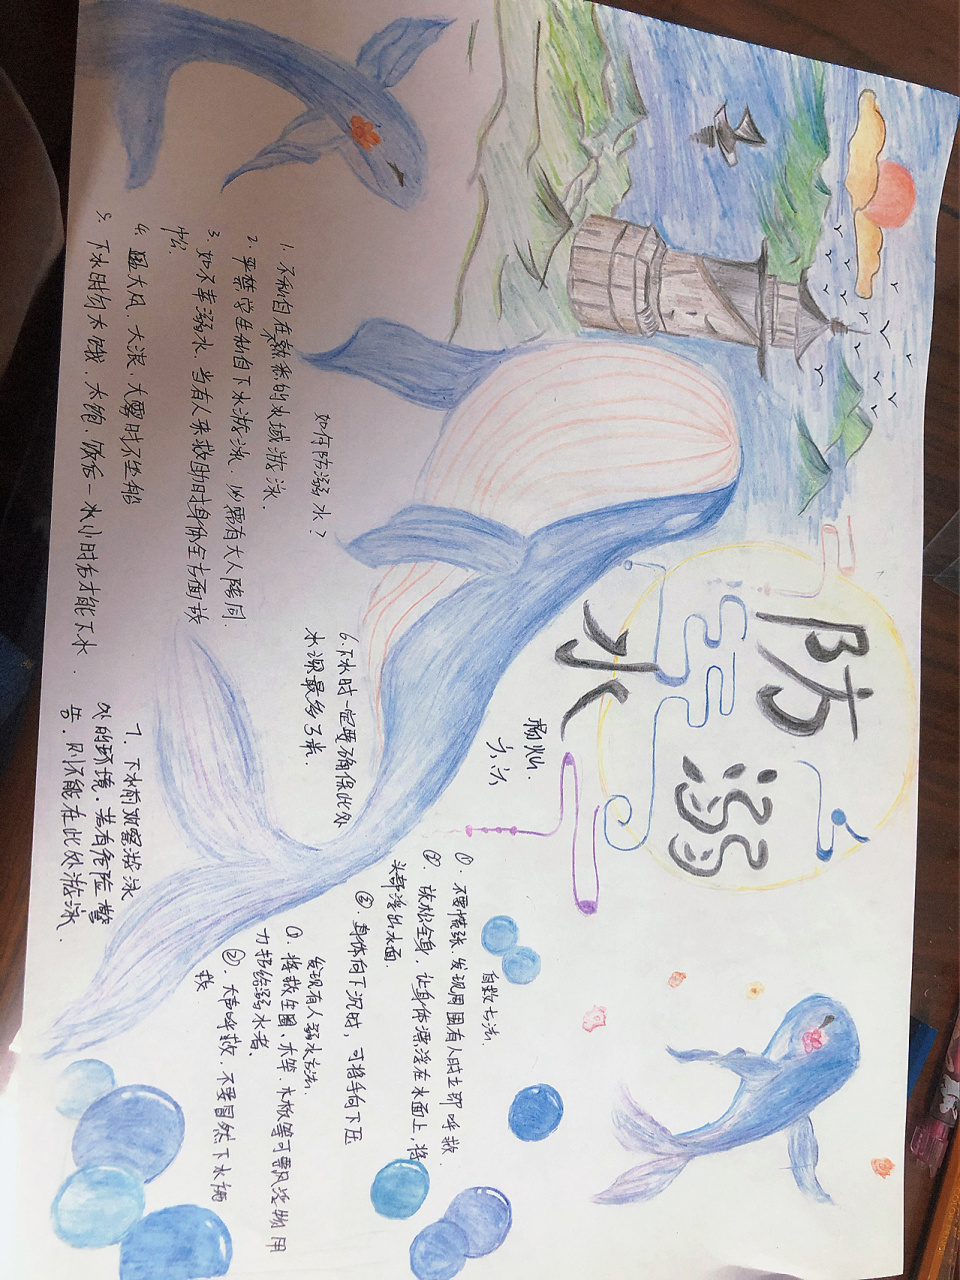 防溺
水
六.六
如何防溺水?
1. 不私自在熟悉的水域游泳.
2. 严禁学生私自下水游泳、必需有大人陪同.
3. 如不幸溺水、当有人来救助时身体全方面放
松.
4. 遇大风、大浪、大雾时不坐船
5. 下水时勿太饿、太饱、饭后一水小时后才能下水.
6. 下水时一定要确保此处
水深最多3米.
7. 下水前观察游泳
处的环境.若有危险警
告.则不能在此处游泳.
自救方法.
①. 不要慌张、发现周围有人时立即呼救.
②. 放松全身、让身体漂浮在水面上,将
头部浮出水面.
③. 身体向下沉时,可将手向下压
发现有人溺水方法.
①. 将救生圈、木竿、木板等可飘浮物用
力扔给溺水者.
②. 大声呼救、不要冒然下水
救